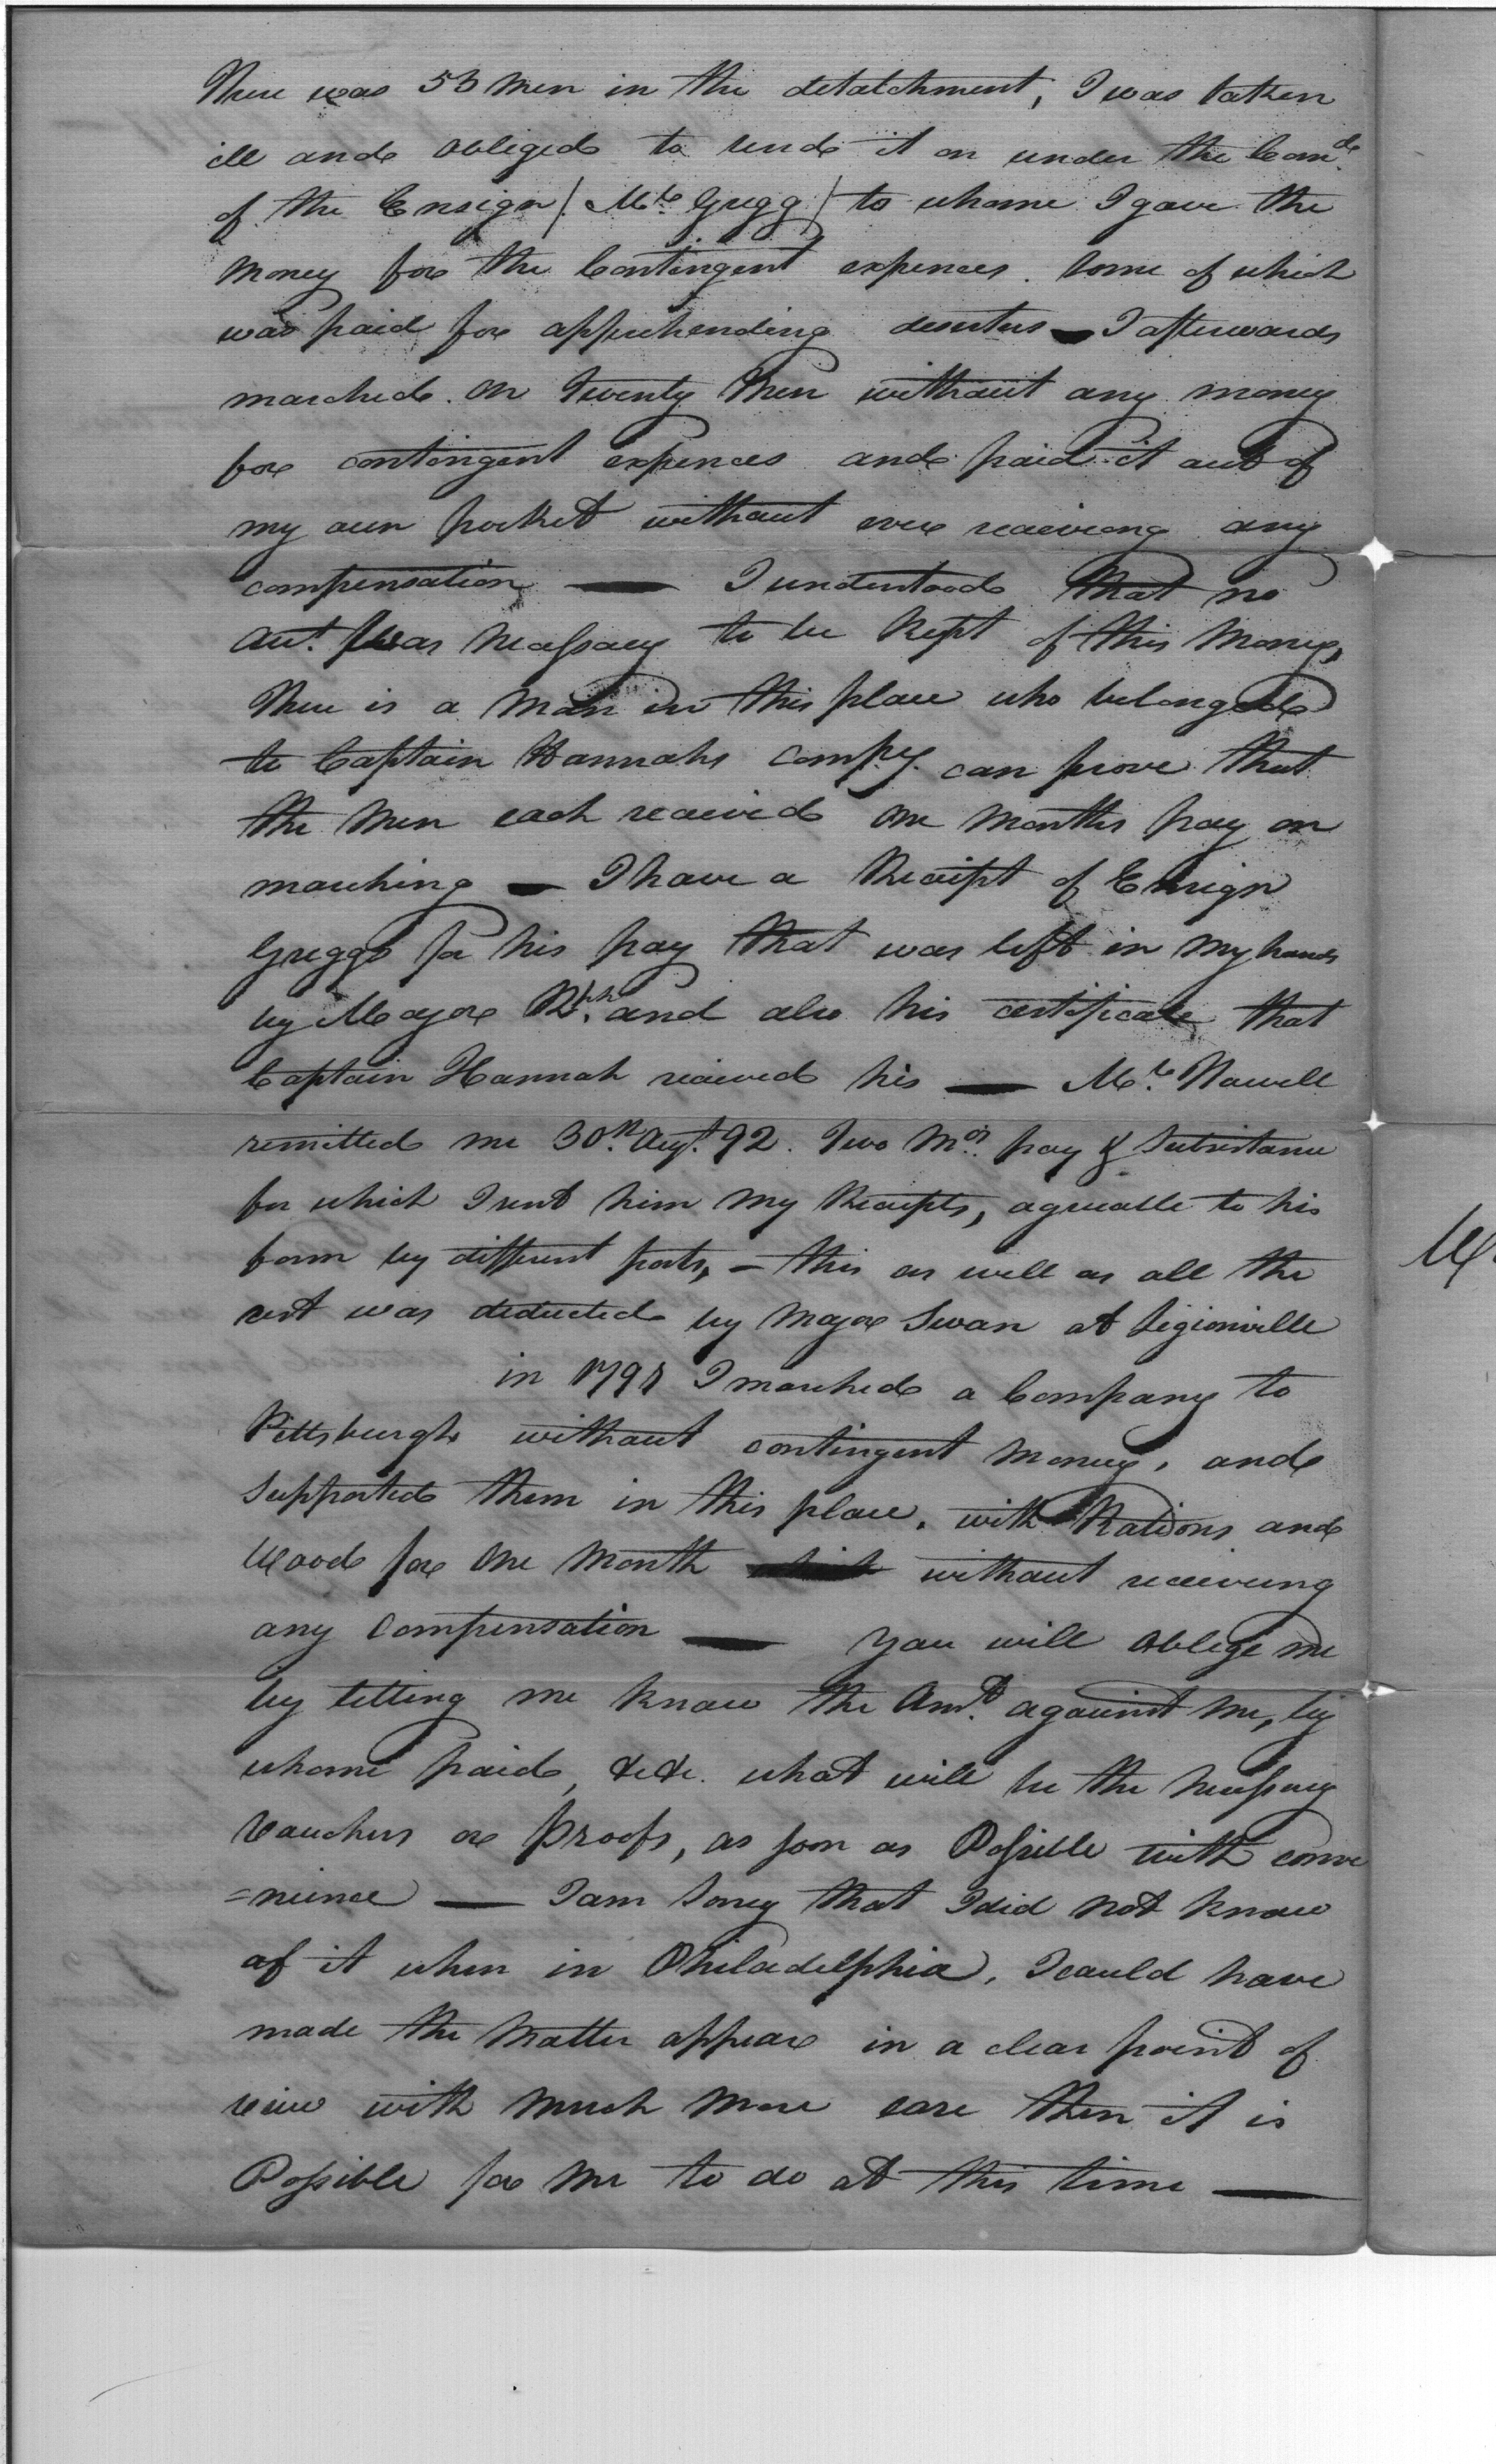 There was 53 men in the detatchment, I was taken
ill and obliged to send it on under the Comd.
of the Ensign /Mr. Gregg/ to whome I gave the
money for the Contingent expences. some of which
was paid for apprehending deserters — I afterwards
marched on Twenty Men without any money
for contingent expences and paid it out of
my own pocket without ever receiving any
compensation — I understood that no
Act. was Nessary to be Kept of this Money,
There is a Man in this place who belonged
to Captain Hannahs Compy. can prove that
the Men each received one Months pay on
marching — I have a Receipt of Ensign
Greggs for his pay that was left in my hands
by Major and also his certificate that
Captain Hannah received his — Mr. Howell
remitted me 30th. Augt. 92. Two Mos. pay & Subsistance
for which I sent him my Receipts, agreable to his
form by different posts, — this as well as all the
rest was deducted by Major Swan at Legionville
in I marched a Company to
Pittsburgh without contingent Money, and
supported them in this place, with Rations and
Wood for one Month without receiving
any Compensation — You will oblege me
by letting me know the Amt. against me, by
whome paid, &c&c. what will be the Nessary
Vouchers or proofs, as soon as Possible with conve
=nience — I am Sorry that I did not know
of it when in Philadelphia, I could have
made the Matter appear in a clear point of
view with much more ease then it is
Possible for me to do at this time —